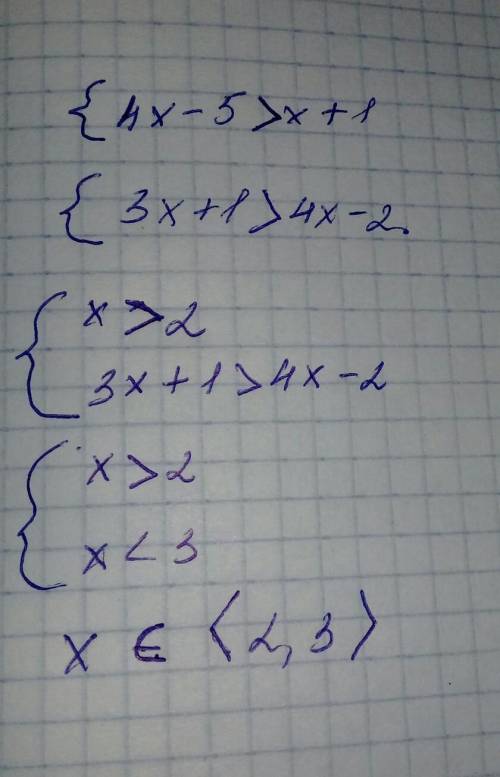 { 4x - 5 > x + 1
{ 3x + 1 > 4x - 2.
{ x > 2
3x + 1 > 4x - 2
{ x > 2
x < 3
x ∈ ⟨2, 3⟩